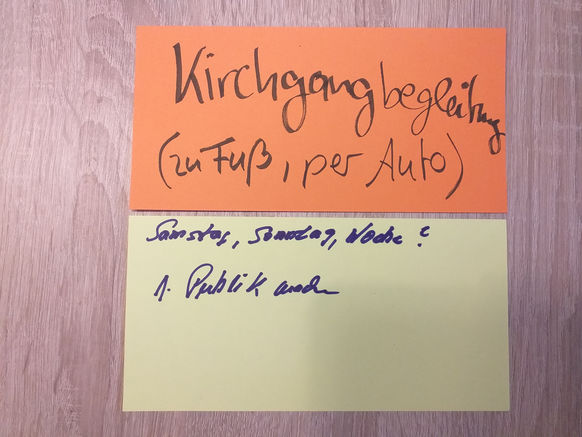 Kirchgangbegleitung
(zu Fuß, per Auto)
Samstag, Sonntag, Woche?
1. Publik machen